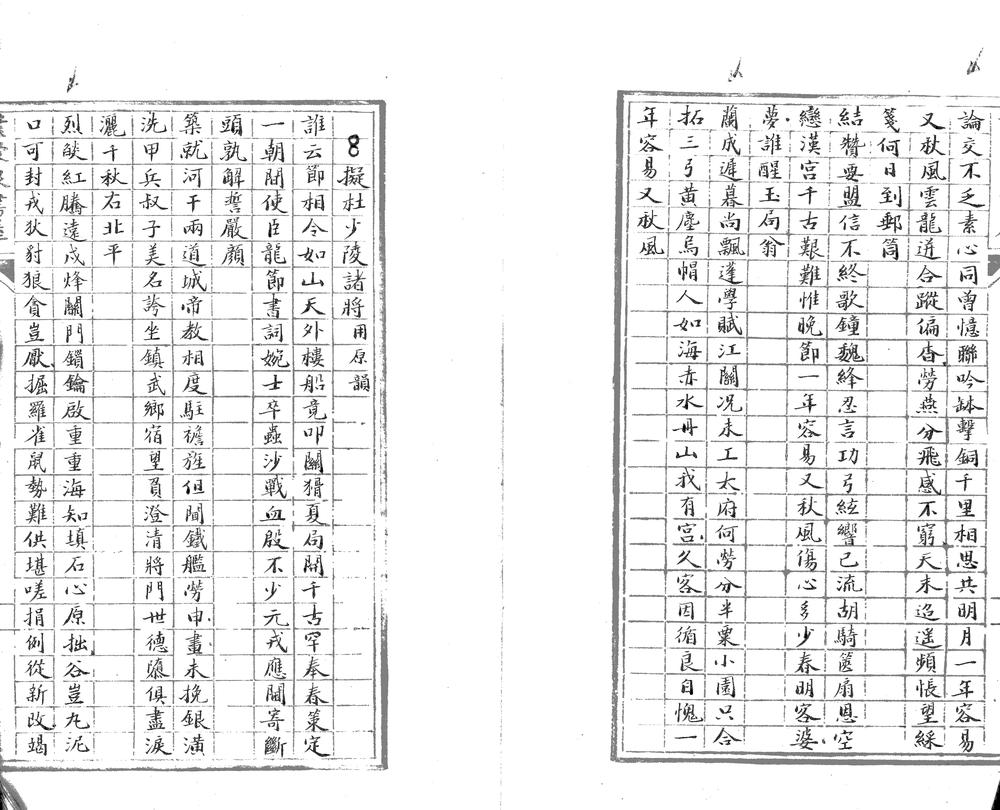 論交不乏素心同曾憶聯吟缽擊銅千里相思共明月一年容易
又秋風雲龍迸合蹤偏杳勞燕分飛感不窮天末迢遥頻悵望綵
箋何日到郵筒
結贊要盟信不終歌鐘魏絳忍言功弓絃響已流胡騎篋扇恩空
戀漢宮千古艱難惟晚節一年容易又秋風傷心多少春明客婆
夢誰醒玉局翁
蘭成遲暮尚飄蓬學賦江關況未工大府何勞分半粟小園只合
拓三弓黃塵烏帽人如海赤水丹山我有宮久客因循良自愧一
年容易又秋風
8擬杜少陵諸將用原韻
誰云節相今如山天外樓船竟叩關猾夏局開千古罕奉春策定
一朝間使臣龍節書詞婉士卒蟲沙戰血殷不少元戎應開寄斷
頭孰解誓嚴顏
築就河干兩道城帝教相度駐襜旌但聞鐵艦勞申畫未挽銀潢
洗甲兵叔子美名誇坐鎮武鄉宿望負澄清將門世德隳俱盡淚
灑千秋右北平
烈燄紅騰遠戍烽關門鎖鑰啟重重海知填石心原拙谷豈丸泥
口可封戎狄豺狼貪豈厭掘羅雀鼠勢難供堪嗟捐例從新改竭